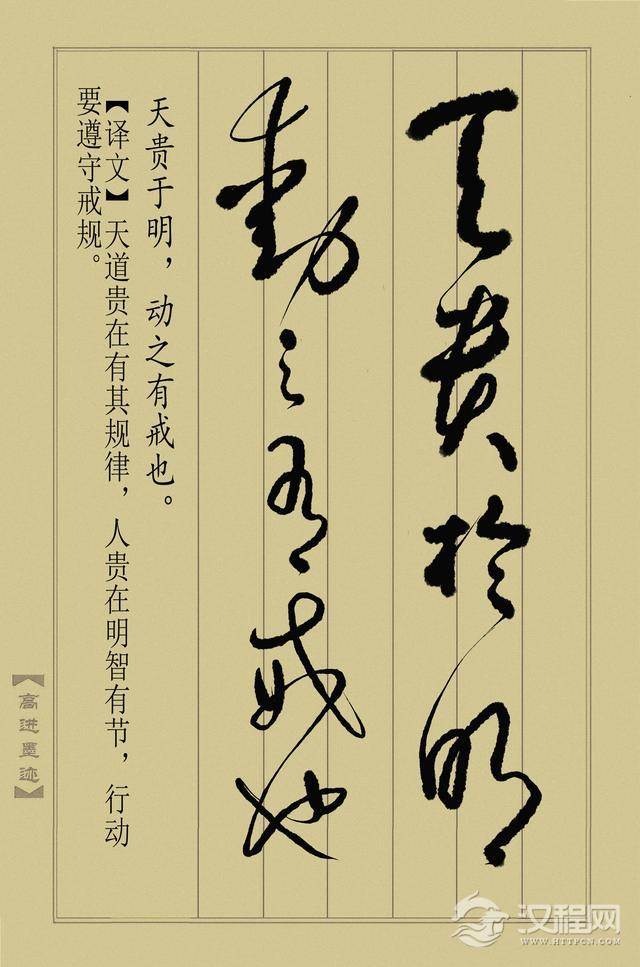 天贵於明
动之有戒也
天贵于明，动之有戒也。
【译文】天道贵在有其规律，人贵在明智有节，行动
要遵守戒规。
【高进墨迹】
汉程网
WWW.HTTPCN.COM